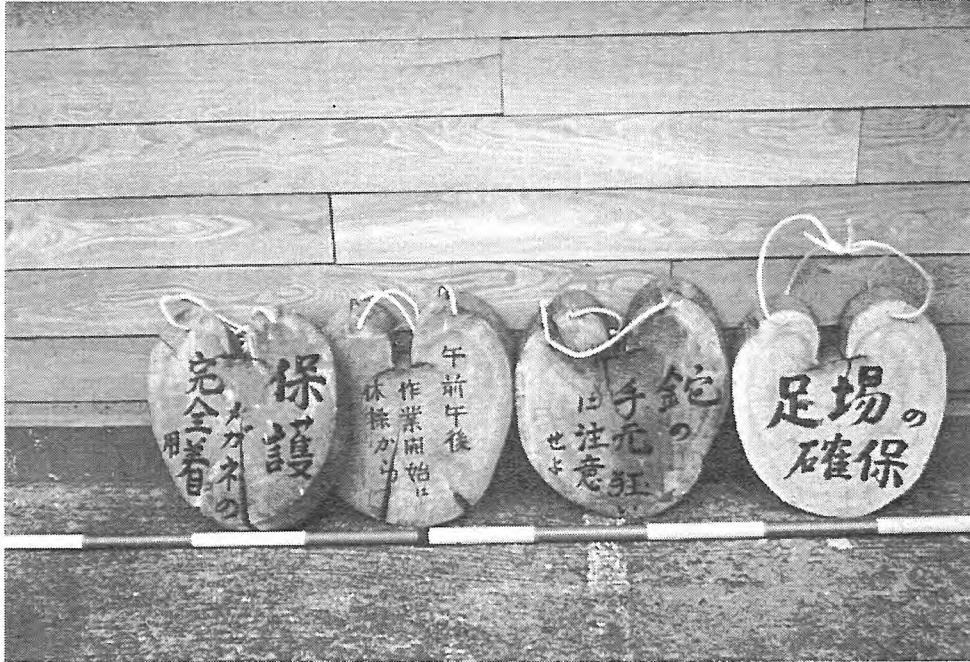 保護
メガネの
完全着用
午前午後
作業開始は
体操から
鉈の
手元狂い
に注意
せよ
足場の
確保